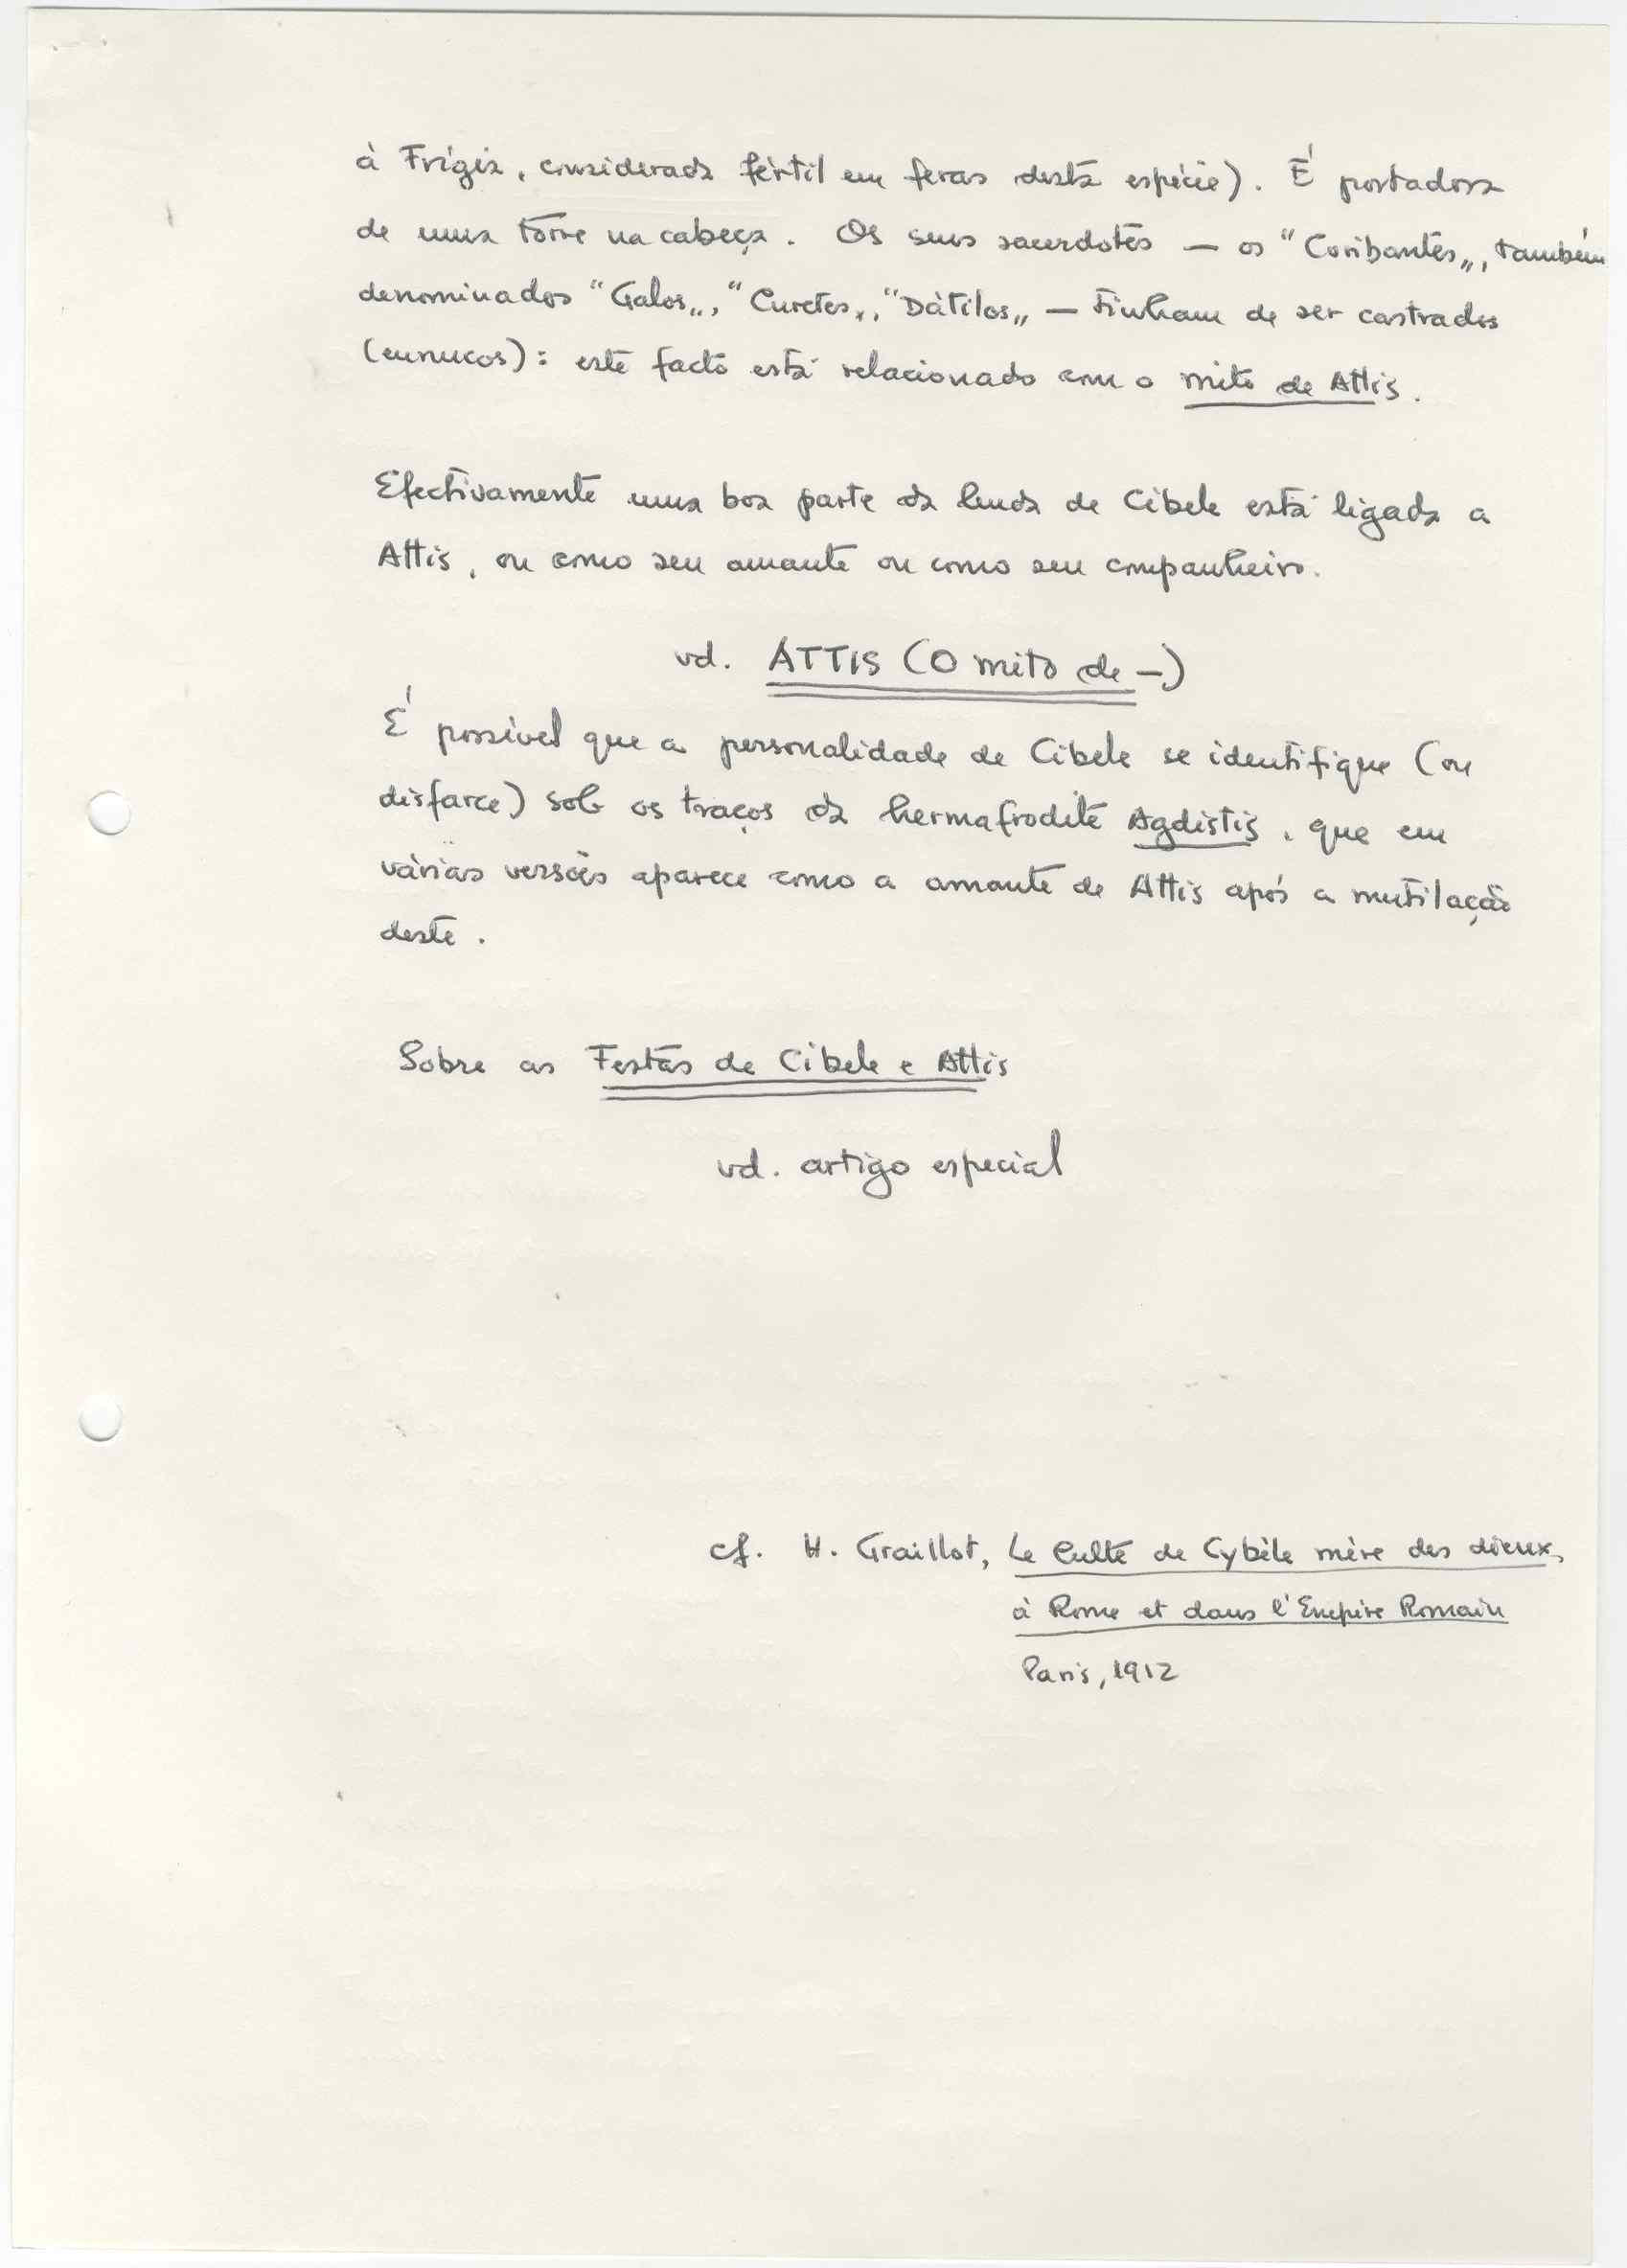 à Frígia, considerada fértil em feras desta espécie). É portadora
de uma torre na cabeça. Os seus sacerdotes — os "Coribantes„, também
denominados "Galos„, "Curetes„, "Dátilos„ — tinham de ser castrados
(eunucos): este facto está relacionado com o mito de Attis.
Efectivamente uma boa parte da lenda de Cibele está ligada a
Attis, ou como seu amante ou como seu companheiro.
vd. ATTIS (O mito de —)
É possível que a personalidade de Cibele se identifique (ou
disfarce) sob os traços da hermafrodite Agdistis, que em
várias versões aparece como a amante de Attis após a mutilação
deste.
Sobre as Festas de Cibele e Attis
vd. artigo especial
cf. H. Graillot, Le Culte de Cybèle mère des dieux,
à Rome et dans l'Empire Romain
Paris, 1912